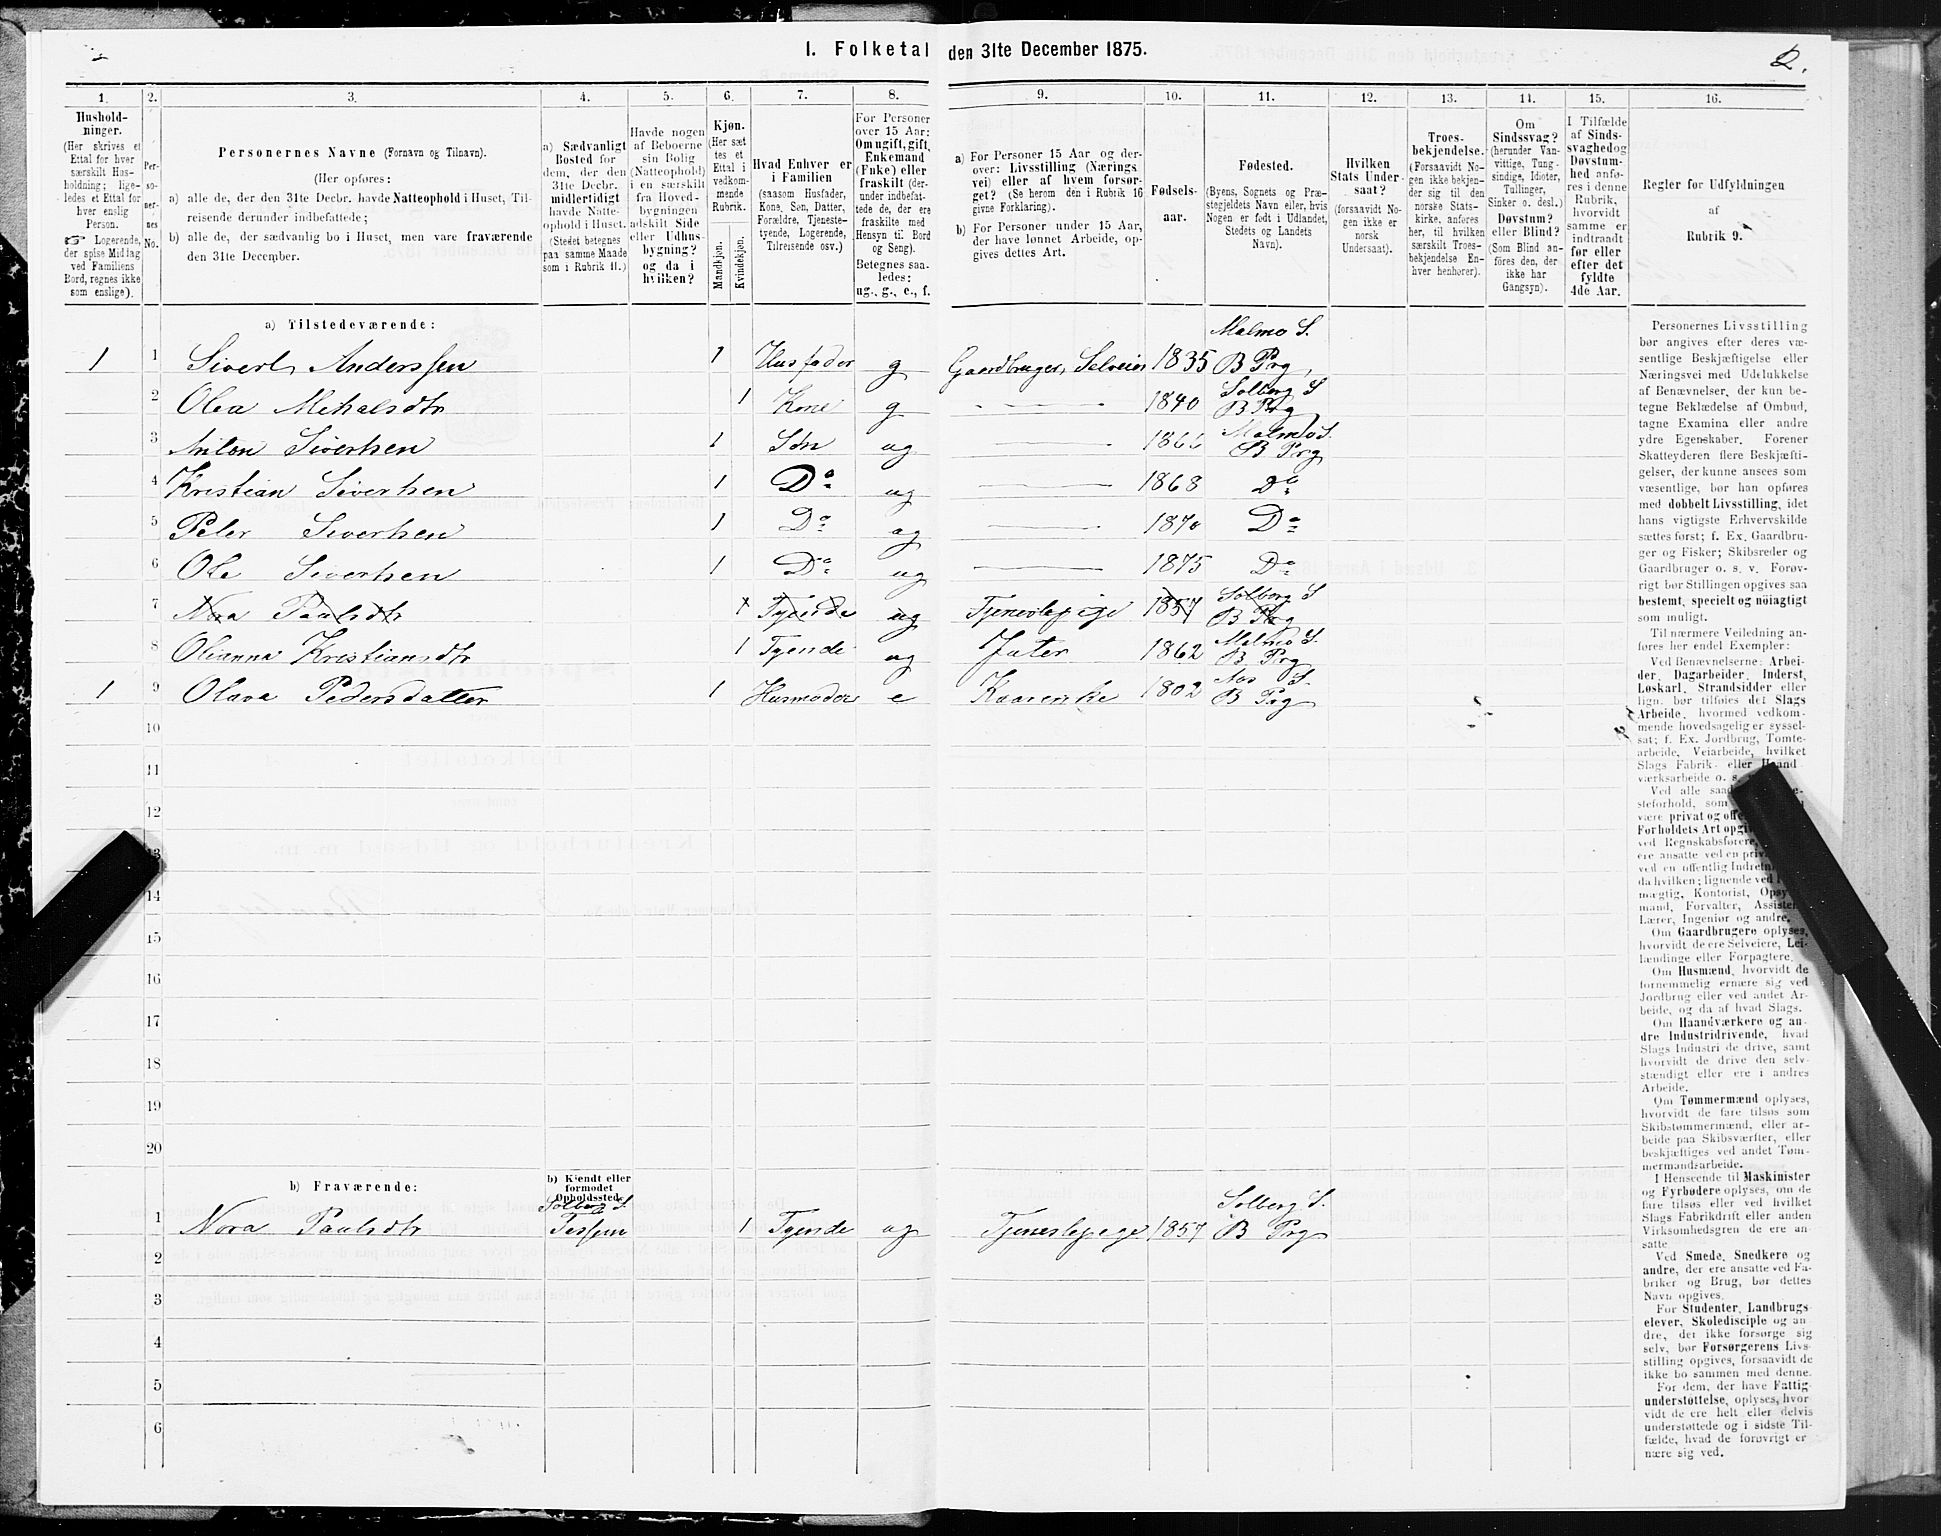 1. Folketal den 31te December 1875.
2.
1. 2. 3. 4. 5. 6. 7. 8. 9. 10. 11. 12. 13. 14. 15. 16.
Hushold-
ninger.
(Her skrives et
Ettal for hver
særskilt Hus-
holdning; lige-
ledes et Ettal for
hver enslig
Person.
☞ Logerende,
der spise Middag
ved Familiens
Bord, regnes ikke
som enslige).
Per-
so-
ner-
nes
No.
Personernes Navne (Fornavn og Tilnavn).
(Her opføres:
a) alle de, der den 31te Decbr. havde Natteophold i Huset, Til-
reisende derunder indbefattede;
b) alle de, der sædvanlig bo i Huset, men vare fraværende
den 31te December.
a) Sædvanligt
Bosted for
dem, der den
31te Decbr.
midlertidigt
havde Natte-
ophold i Huset.
(Stedet betegnes
paa samme Maade
som i Rubrik 11.)
Havde nogen
af Beboerne
sin Bolig
(Natteophold)
i en særskilt
fra Hoved-
bygningen
adskilt Side
eller Udhus-
bygning?
og da i
hvilken?
Kjøn.
(Her sæt
tes et
Ettal i
vedkom-
mende
Rubrik.
Mandkjøn.
Kvindekjøn.
Hvad Enhver er
i Familien
(saasom Husfader,
Kone, Søn, Datter,
Forældre, Tjeneste-
tyende, Logerende,
Tilreisende osv.)
For Personer
over 15 Aar:
Om ugift, gift,
Enkemand
(Enke) eller
fraskilt (der-
under indbefat-
tede de, der ere
fraskilte med
Hensyn til Bord
og Seng).
Betegnes saa-
ledes:
ug., g., e., f.
a) For Personer 15 Aar og der-
over: Livsstilling (Nærings
vei) eller af hvem forsør-
get? (Se herom den i Rubrik 16
givne Forklaring).
b) For Personer under 15 Aar,
der have lønnet Arbeide, op-
gives dettes Art.
Fødsels-
aar.
Fødested.
(Byens, Sognets og Præ-
stegjeldets Navn eller, hvis
Nogen er født i Udlandet,
Stedets og Landets
Navn).
Hvilken
Stats Under-
saat?
(forsaavidt No-
gen ikke er
norsk
Undersaat).
Troes-
bekjendelse.
(Forsaavidt No-
gen ikke bekjen-
der sig til den
norske Stats-
kirke, anføres
her, til hvilken
særskilt Troes-
bekjendelse En-
hver henhører).
Om
Sindssvag?
(herunder Van-
vittige, Tung-
sindige, Idioter,
Tullinger,
Sinker o. desl.)
Døvstum?
eller Blind?
(Som Blind an-
føres den, der
ikke har
Gangsyn).
I Tilfælde
af Sinds-
svaghed og
Døvstum-
hed anfø-
res i denne
Rubrik,
hvorvidt
samme er
indtraadt
før eller
efter det
fyldte
4de Aar.
Regler for Udfyldningen
af
Rubrik 9.
a) Tilstedeværende:
1 1 Sivert Anderssen 1 Husfader g Gaardbruger, Selveier 1835 Malmo S. B Prg,
2 Olea Mikalsdtr 1 Kone g 1840 Solberg S B Prg
3 Anton Sivertsen 1 Søn ug Malmo S. B Prg
4 Kristian Sivertsen 1 Do ug 1868 Do
5 Peter Sivertsen 1 Do ug 1870 Do
6 Ole Sivertsen 1 Do ug 1875 Do
7 Nora Paulsdtr 1 Tyende ug Tjenestepige 1857 Solberg S B Prg
8 Olianna Kristiansdtr 1 Tyende ug Jeter 1862 Malmo S. B Prg
1 9 Olava Pedersdatter 1 Husmoder e Kaarenke 1802 S. B Prg
10
11
12
13
14
15
16
17
18
19
20
b) Fraværende:
b) Kjendt eller
formodet
Opholdssted.
1 Nora Paulsdtr Solberg S. Tessem 1 Tyende ug Tjenestepige 1857 Solberg S. B Prg
2
3
4
5
6
Personernes Livsstilling
bør angives efter deres væ-
sentlige Beskjæftigelse eller
Næringsvei med Udelukkelse
af Benævnelser, der kun be-
tegne Beklædelse af Ombud,
tagne Examina eller andre
ydre Egenskaber. Forener
Skatteyderen flere Beskjæfti-
gelser, der kunne ansees som
væsentlige, bør han opføres
med dobbelt Livsstilling, idet
hans vigtigste Erhvervskilde
sættes først; f. Ex. Gaardbru-
ger og Fisker; Skibsreder og
Gaardbruger o. s. v. Forøv-
rigt bør Stillingen opgives saa
bestemt, specielt og nøiagtigt
som muligt.
Til nærmere Veiledning an-
føres her endel Exempler:
Ved Benævnelserne: Arbei-
der, Dagarbeider, Inderst,
Løskarl, Strandsidder eller
lign. bør tilføies det Slags
Arbeide, hvormed vedkom-
mende hovedsagelig er syssel-
sat; f. Ex. Jordbrug, Tomte-
arbeide, Veiarbeide, hvilket
Slags Fabrik- eller Haand-
værksarbeide o. s.
Ved alle saad
steforhold, som
være privat og off
Forholdets Art opgiv
ved Regnskabsførere,
ere ansatte ved en priv
ved en offentlig Indretn
da hvilken; lignende ved
mægtig, Kontorist, Opsy
mand, Forvalter, Assisten
Lærer, Ingeniør og andre.
Om Gaardbrugere oplyses,
hvorvidt de ere Selveiere, Lei-
lændinge eller Forpagtere.
Om Husmænd, hvorvidt de
fornemmelig ernære sig ved
Jordbrug eller ved andet Ar-
beide, og da af hvad Slags.
Om Haandværkere og an-
dre Industridrivende, hvad
Slags Industri de drive, samt
hvorvidt de drive den selv-
stændigt eller ere i andres
Arbeide.
Om Tømmermænd oplyses,
hvorvidt de fare tilsøs som
Skibstømmermænd, eller ar-
beide paa Skibsværfter, eller
beskjæftiges ved andet Tøm-
mermandsarbeide.
I Henseende til Maskinister
og Fyrbødere oplyses, om de
fare tilsøs eller ved hvilket
Slags Fabrikdrift eller anden
Virksomhedsgren de ere an-
satte.
Ved Smede, Snedkere og
andre, der ere ansatte ved Fa-
briker og Brug, bør dettes
Navn opgives.
For Studenter, Landbrugs-
elever, Skoledisciple og an
dre, der ikke forsørge sig
selv, bør Forsørgerens Livs-
stilling opgives, forsaavidt de
ikke bo sammen med denne.
For dem, der have Fattig-
understøttelse, oplyses, hvor
vidt de ere helt eller delvis
understøttede og i sidste Til-
fælde, hvad de forøvrigt er
nære sig ved.